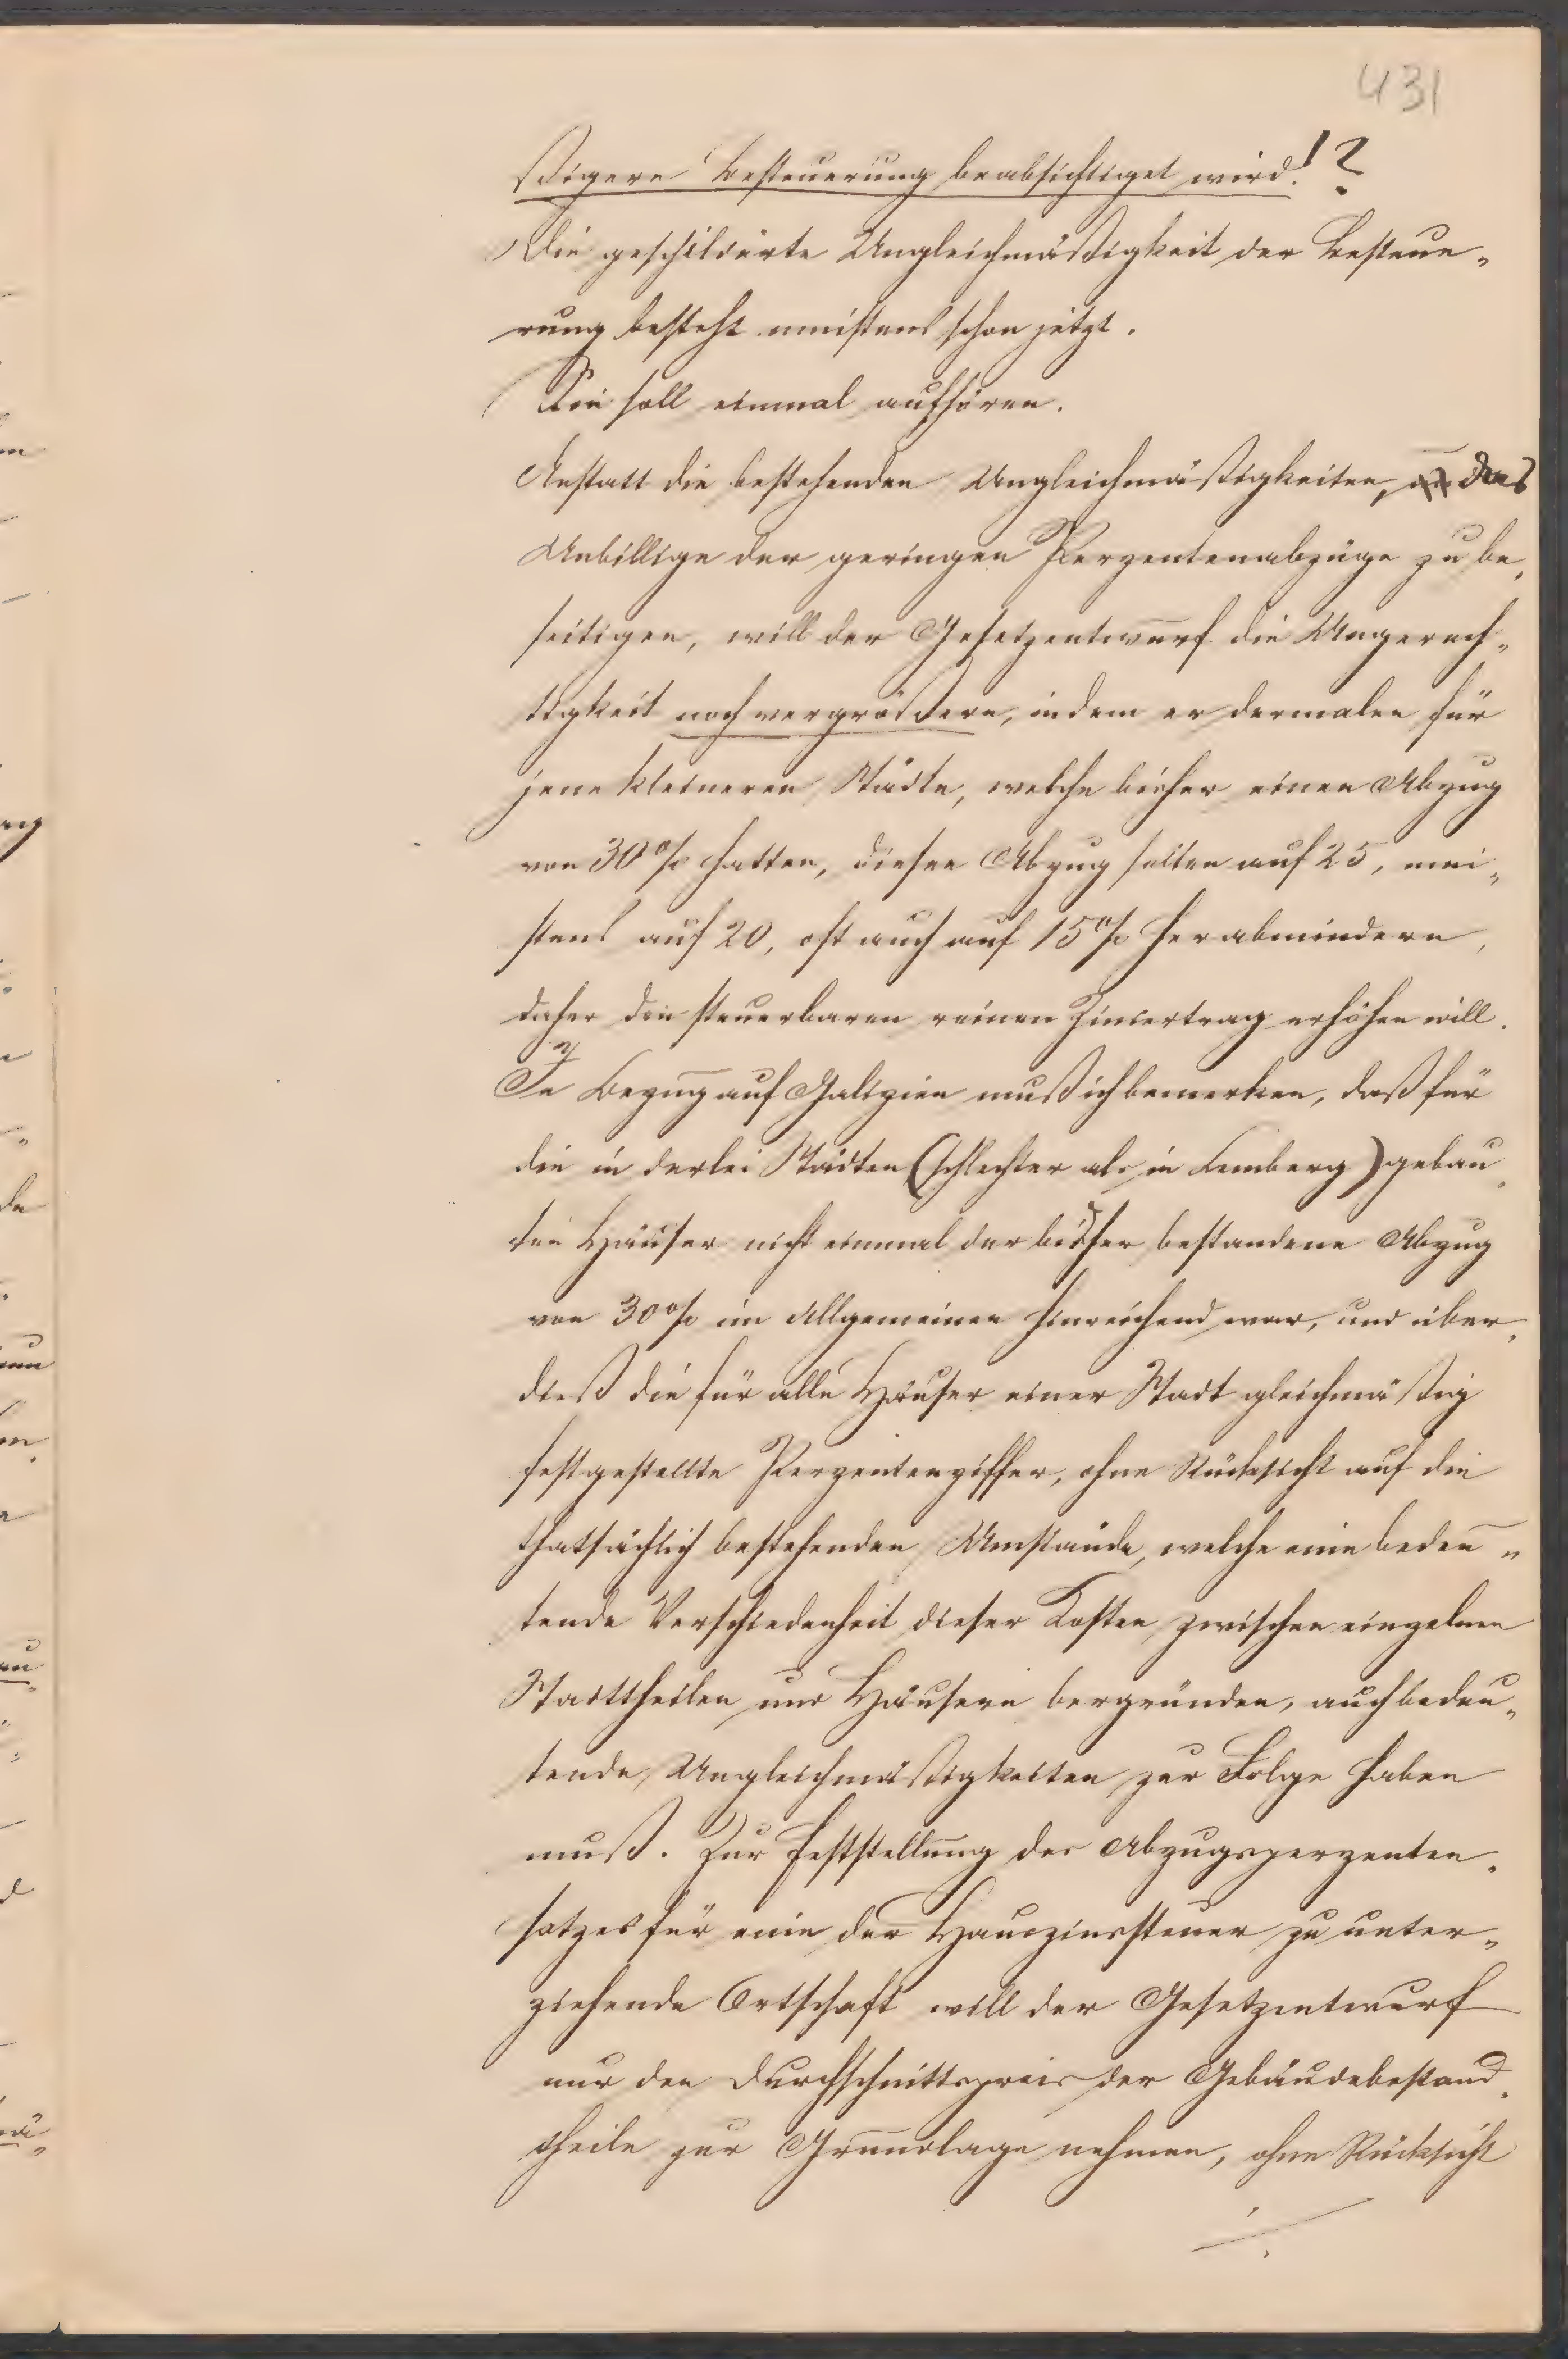 431
ßigere Besteuerung beabsichtiget wird!?
Die geschilderte Ungleichmäßigkeit der Besteue„
rung besteht meistens schon jetzt.
Sie soll einmal aufhören.
Anstatt die bestehenden Ungleichmäßigkeiten, das
Unbillige der geringen Perzentenabzüge zu be„
seitigen, will der Gesetzentwurf die Ungerech„
tigkeit noch vergrößern, indem er dermalen für
jene kleineren Städte, welche bisher einen Abzug
von 30% hatten, diesen Abzug selten auf 25, mei„
stens auf 20, oft auch auf 15% herabmindern,
daher den steuerbaren reinen Zinsertrag erhöhen will.
In Bezug auf Galizien muß ich bemerken, daß für
die in derlei Städten (schlechter als in Lemberg) gebau„
ten Häuser nicht einmal der bisher bestandene Abzug
von 30% im Allgemeinen hinreichend war, und über„
dieß die für alle Häuser einer Stadt gleichmäßig
festgestellte Perzentenziffer, ohne Rücksicht auf die
thatsächlich bestehenden Umstände, welche eine bedeu„
tende Verschiedenheit dieser Kosten zwischen einzelnen
Stadttheilen und Häusern bergründen, auch bedeu„
tende Ungleichmäßigkeiten zur Folge haben
muß. Zur Feststellung des Abzugsperzenten„
satzes für eine der Hauszinssteuer zu unter„
ziehende Ortschaft will der Gesetzentwurf
nur den Durchschnittspreis der Gebäudebestand„
theile zur Grundlage nehmen, ohne Rücksicht
./.